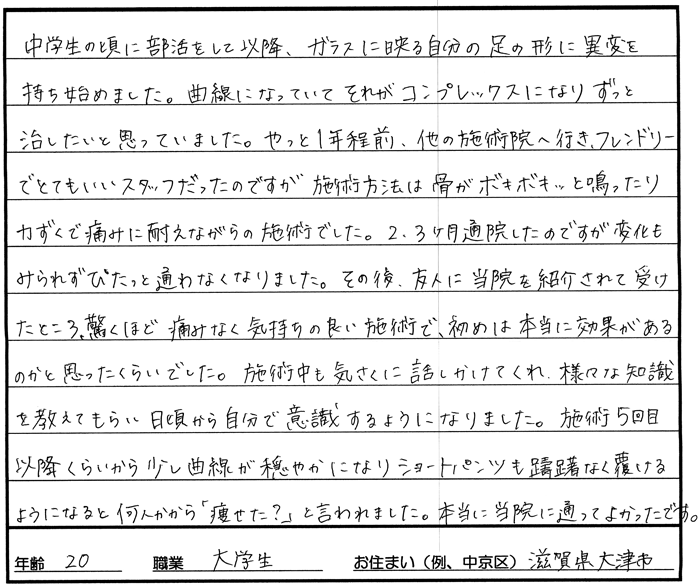 中学生の頃に部活をして以降、ガラスに映る自分の足の形に異変を
持ち始めました。曲線になっていてそれがコンプレックスになりずっと
治したいと思っていました。やっと1年程前、他の施術院へ行き、フレンドリー
でとてもいいスタッフだったのですが施術方法は骨がボキボキッと鳴ったり
力ずくで痛みに耐えながらの施術でした。2、3ヶ月通院したのですが変化も
みられずぴたっと通わなくなりました。その後、友人に当院を紹介されて受け
たところ、驚くほど痛みなく気持ちの良い施術で、初めは本当に効果がある
のかと思ったくらいでした。施術中も気さくに話しかけてくれ、様々な知識
を教えてもらい日頃から自分で意識するようになりました。施術5回目
以降くらいから少し曲線が穏やかになりショートパンツも躊躇なく履ける
ようになると何人かから「痩せた?」と言われました。本当に当院に通ってよかったです。
年齢 20 職業 大学生 お住まい(例、中京区) 滋賀県大津市